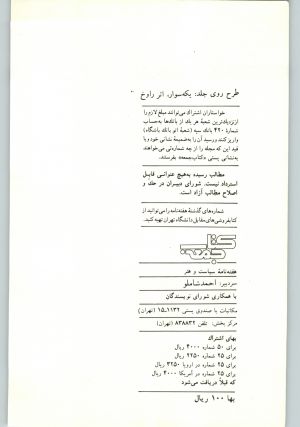 طرح روی جلد: یکه‌سوار. اثر راوخ
خواستاران اشتراک می‌توانند مبلغ لازم را
از نزدیک‌ترین شعبهٔ هر یک از بانک‌ها به‌حساب
شمارهٔ ۴۲۰ بانک سپه (شعبهٔ اتو بانک باشگاه)
واریز کنند و رسید آن را به‌ضمیمهٔ نشانی خود و با
قید این که مجله را از چه شماره‌ئی می‌خواهند،
به‌نشانی پستی «کتاب‌جمعه» بفرستند.
مطالب رسیده به‌هیچ عنوانی قابل
استرداد نیست. شورای دبیران در حک و
اصلاح مطالب آزاد است.
شماره‌های گذشتهٔ هفته‌نامه را می‌توانید از
کتابفروشی‌های مقابل دانشگاه تهران تهیه کنید.
کتاب
جمعه
هفته‌نامهٔ سیاست و هنر
سردبیر: احمد شاملو
با همکاری شورای نویسندگان
مکاتبات با صندوق پستی ۱۱۳۲-۱۵ (تهران)
مرکز پخش: تلفن ۸۳۸۸۳۲ (تهران)
بهای اشتراک
برای ۵۰ شماره ۴۰۰۰ ریال
برای ۲۵ شماره ۲۲۵۰ ریال
برای ۲۵ شماره در اروپا ۳۲۵۰ ریال
برای ۲۵ شماره در آمریکا ۴۰۰۰ ریال
که قبلاً دریافت می‌شود
بها ۱۰۰ ریال